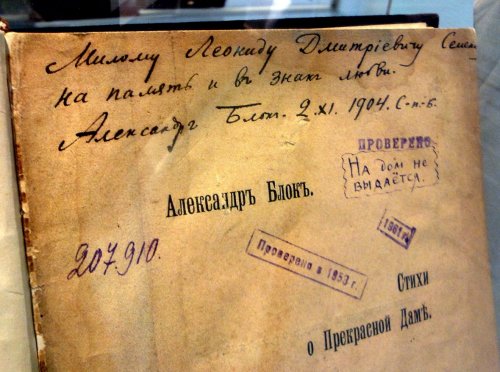 Милому Леониду Дмитріевичу Семен
на память и въ знакъ любви.
Александръ Блокъ. 2.XI.1904. С-п-б.
ПРОВЕРЕНО
На дом не
выдаётся.
Александръ Блокъ.
1961 г.
207.910.
Проверено в 1953 г.
Стихи
о Прекрасной Дамѣ.